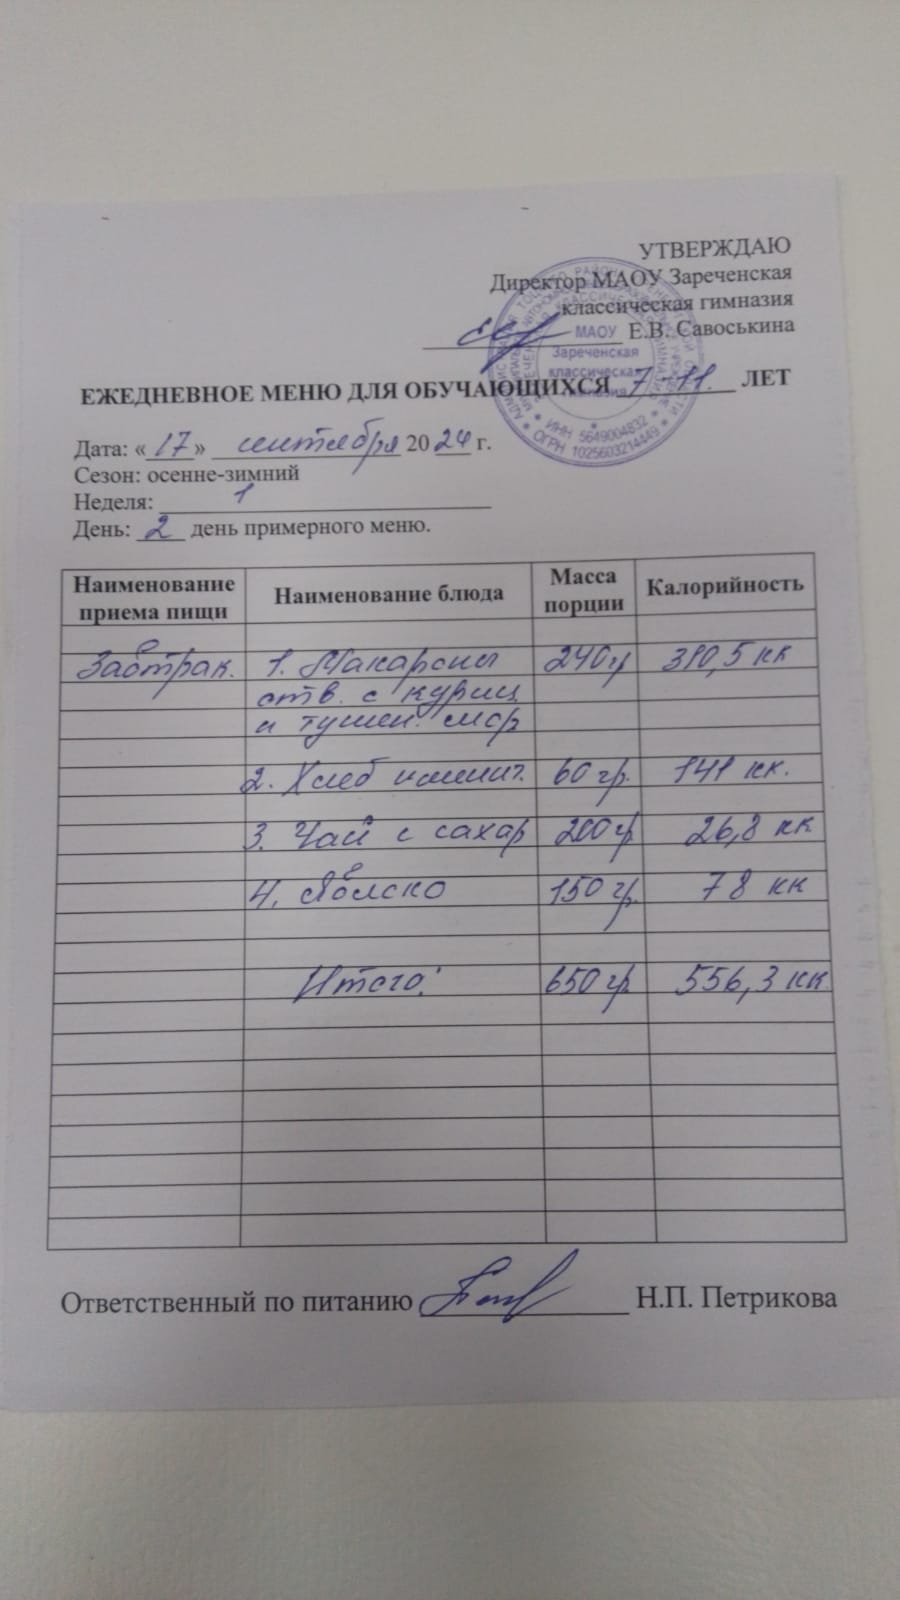 УТВЕРЖДАЮ
Директор МАОУ Зареченская
классическая гимназия
Е.В. Савоськина
МАОУ
Зареченская
классическая
гимназия
ИНН 5649004832
ОГРН 1025603214449
ЕЖЕДНЕВНОЕ МЕНЮ ДЛЯ ОБУЧАЮЩИХСЯ 7-11. ЛЕТ
Дата: «17» сентября 2024 г.
Сезон: осенне-зимний
Неделя: 1
День: 2 день примерного меню.
Наименование приема пищи Наименование блюда Масса порции Калорийность
Завтрак. 1. Макароны 240гр 310,5 кк
отв. с куриц
и тушен. мор
2. Хлеб пшенич. 60 гр. 141 кк.
3. Чай с сахар 200гр 26,8 кк
4. Яблоко 150 гр. 78 кк
Итого: 650 гр. 556,3 кк.
Ответственный по питанию Н.П. Петрикова